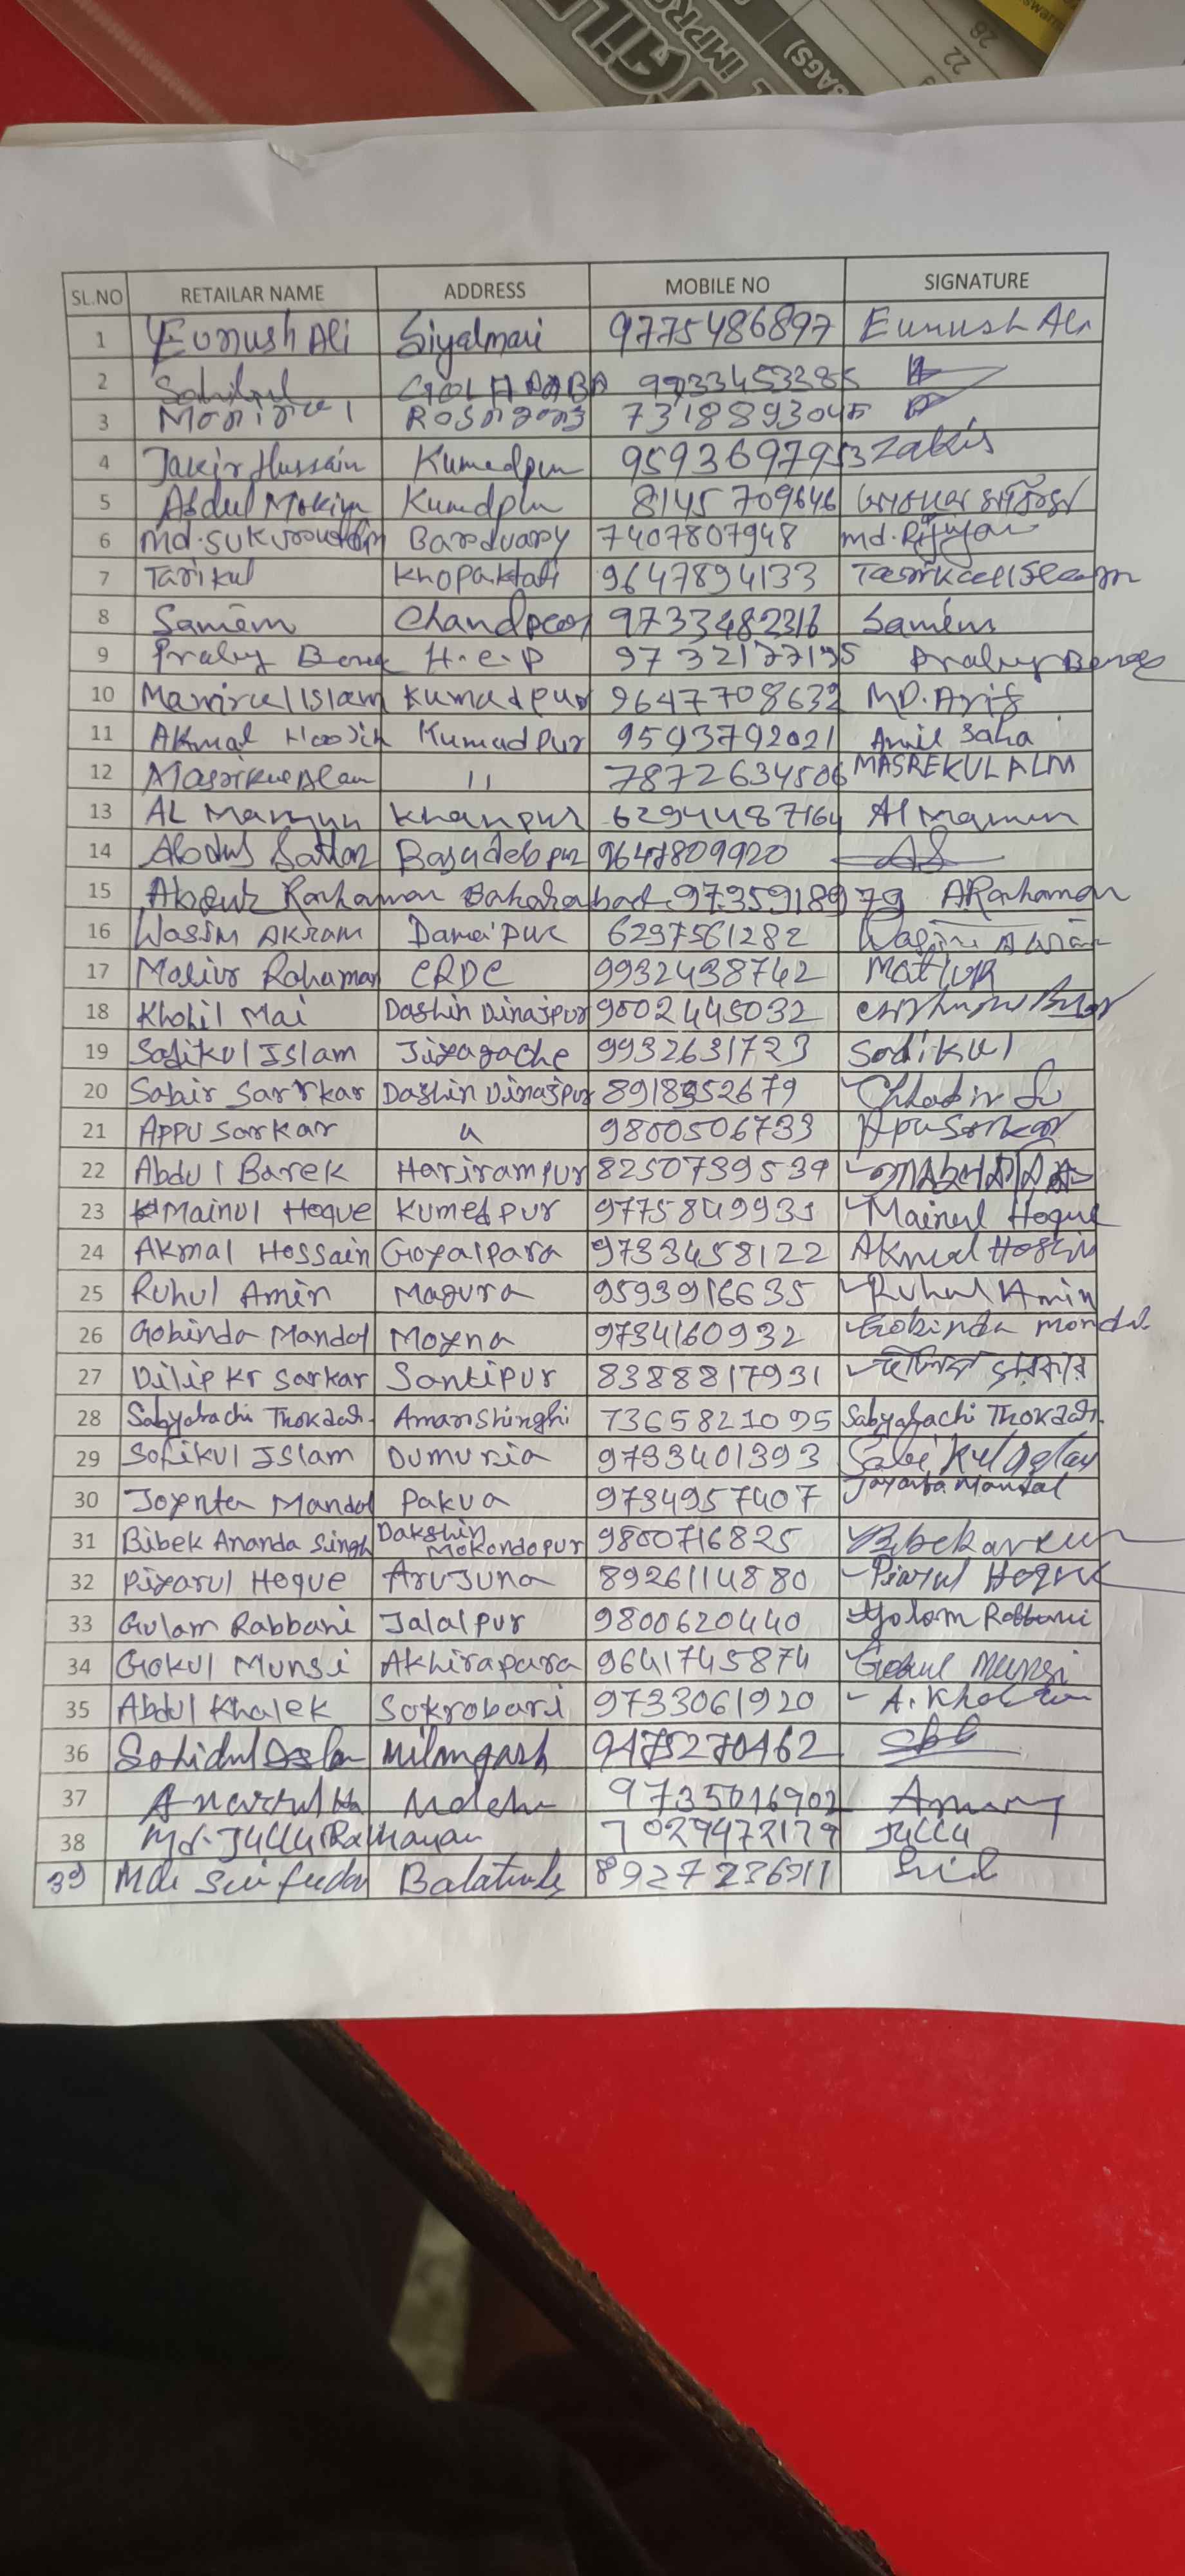 IMPRO
BAGS)
22
28
SL.NO RETAILAR NAME ADDRESS MOBILE NO SIGNATURE
1 Eunush Ali Siyalmari 9775486897 Eunush Ali
2 Sahidul
3 Monirul 
4 Jakir Hussain Kumedpur 9593697953 Zakir
5 Abdul Mokim Kumdpur 8145709646
6 Barduary 7407807948 md.
7 Tarikul Khopakhati 9647894133
8 Samem Chandpur 9733482316 Samem
9 H.C.P
10 Manirul Islam Kumadpur 9647708632 MD. Arif
11 AKmal Hoosin Kumadpur 9593792021 Amil Saha
12 Masrikul Alam 11 7872634506 MASREKUL ALM
13 AL Mamun Khanpur 6294487164 Al Mamun
14 Abdus Sattar Basudebpur 9647809920 AS
15 Abdur Rahaman Baharabad 9735918979 ARahaman
16 Wasim AKRAM 6297561282 Wasim Akram
17 Motiur Rahaman CRDC 9932438742 Matiur
18 Kholil Mai Dashin Dinajpur 9002445032
19 Sadikul Islam Jiyagache 9932631723 Sodikul
20 Sabir Sarrkar Dashin Dinajpur 8918352679
21 Appu Sarkar 9800506733 Apu Sarkar
22 Abdul Barek Harirampur 8250739539
23 Mainul Hoque Kumedpur 9775849931 Mainul Hoque
24 Akmal Hossain Goyalpara 9733458122 Akmal Hossin
25 Ruhul Amin Magura 9593916635 Ruhul Amin
26 Gobinda Mandol Moyna 9734160932 Gobinda mondal
27 Dilip Kr Sarkar Santipur 8388817931 দিলিপ সরকার
28 Sabyabachi Thokdar Amarshinghi 7365821095 Sabyabachi Thokdar
29 Sofikul Islam Dumuria 9733401393
30 Joynta Mandol Pakua 9734957407 Jayanta Mandal
31 Bibek Ananda Singh Dakshin Mokondopur 9800716825
32 Piyarul Hoque Arujuna 8926114880 Piarul Hoque
33 Gulam Rabbani Jalalpur 9800620440 Golam Rabbani
34 Gokul Munsi Akhirapara 9641745874 Gokul Munsi
35 Abdul Khalek Sokrobari 9733061920 A. Khalek
36 Sohidul Islam Milangarh 9475270462
37 9735016902
38 Md. Jullu Rahaman 7029472179 Jullu
39 8927236211